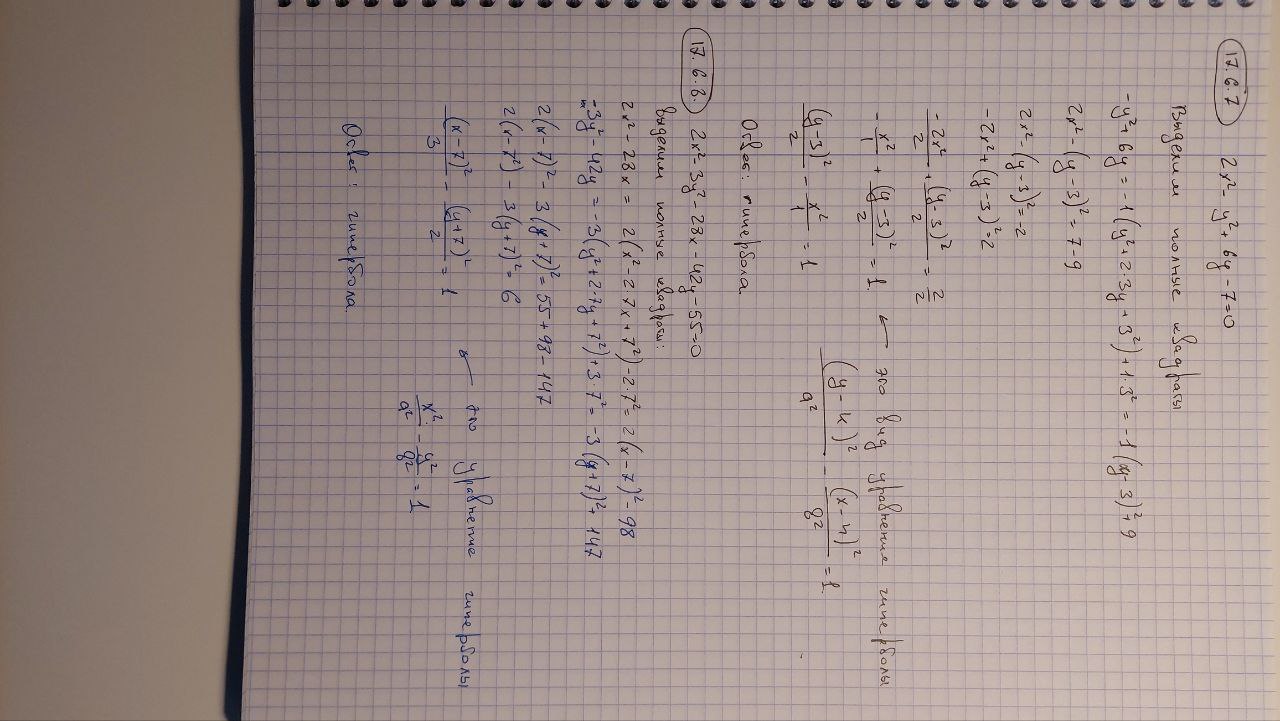 17.6.7 2x² - y² + 6y - 7 = 0
Выделим полные квадраты
-y² + 6y = -1(y² + 2·3y + 3²) + 1·3² = -1(y - 3)² + 9
2x² - (y - 3)² = 7 - 9
2x² - (y - 3)² = -2
-2x² + (y - 3)² = 2
-2x²/2 + (y - 3)²/2 = 2/2
-x²/1 + (y - 3)²/2 = 1. ← это вид уравнение гиперболы
(y - k)²/a² - (x - h)²/b² = 1
(y - 3)²/2 - x²/1 = 1
Ответ: гипербола.
17.6.8. 2x² - 3y² - 28x - 42y - 55 = 0
Выделим полные квадраты:
2x² - 28x = 2(x² - 2·7x + 7²) - 2·7² = 2(x - 7)² - 98
-3y² - 42y = -3(y² + 2·7y + 7²) + 3·7² = -3(y + 7)² + 147
2(x - 7)² - 3(y + 7)² = 55 + 98 - 147
2(x - 7²) - 3(y + 7)² = 6
(x - 7)²/3 - (y + 7)²/2 = 1 ← это уравнение гиперболы
x²/a² - y²/b² = 1
Ответ: гипербола.